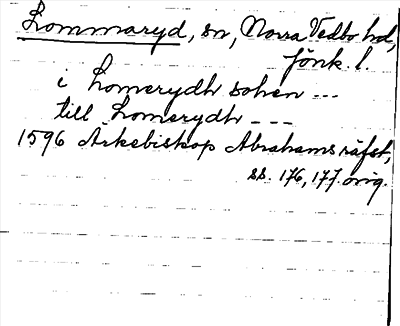 Lommaryd, sn, Norra Vedbo hd,
Jönk. l.
i Lomerydh sohen ---
till Lomerydh ---
1596 Ärkebiskop Abrahams räfst,
ss. 176, 177. orig.